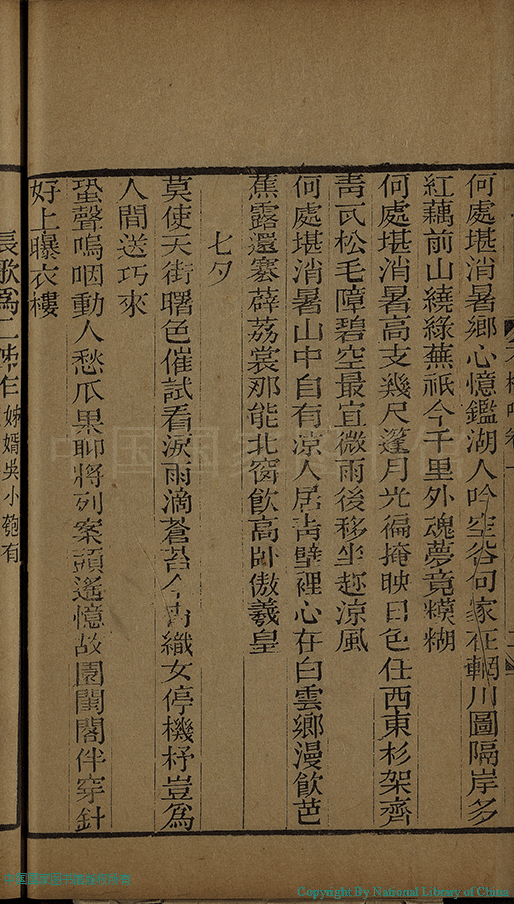 何處堪消暑鄉心憶鑑湖人吟空谷句家在輞川圖隔岸多
紅藕前山繞綠蕪祇今千里外魂夢竟糢糊
何處堪消暑高支幾尺篷月光徧掩映日色任西東杉架齊
靑瓦松毛障碧空最宜微雨後移坐趂涼風
何處堪消暑山中自有涼人居靑壁裡心在白雲鄉漫飮芭
蕉露還搴薜荔裳那能北窗飮高卧傲羲皇
七夕
莫使天街曙色催試看淚雨滴蒼苔今宵織女停機杼豈爲
人間送巧來
蛩聲嗚咽動人愁瓜果聊將列案頭遙憶故園閨閣伴穿針
好上曝衣樓
長歌爲二姊作姊婿吳小匏有
中国国家图书馆
Copyright By National Library of China